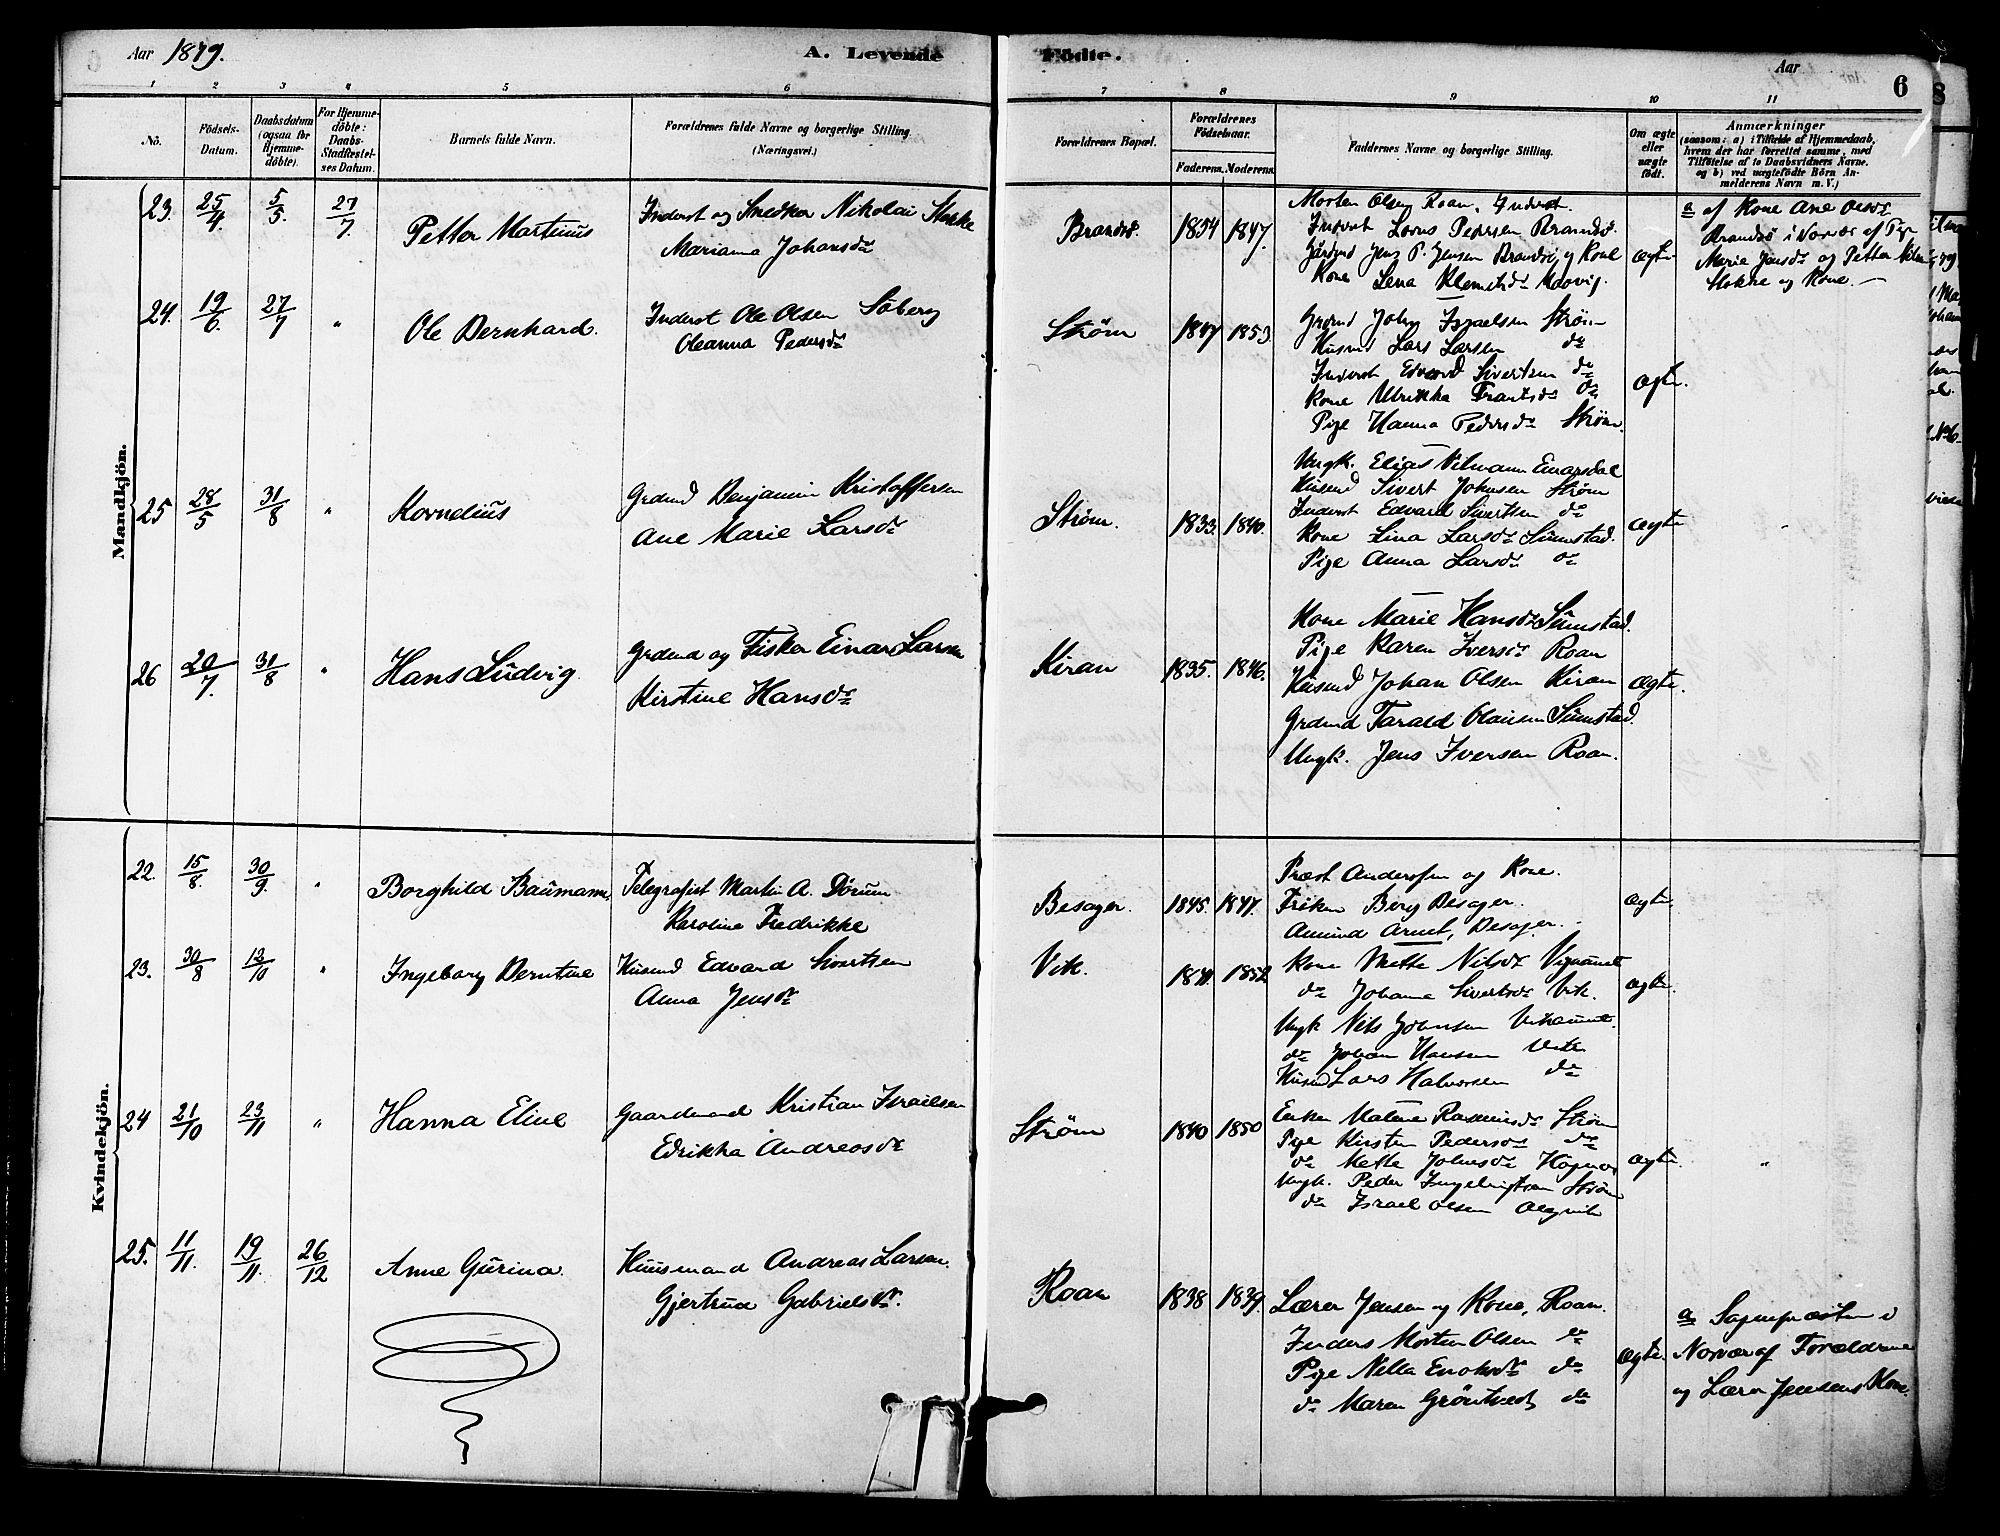 Aar 1879.
A. Levende
Födte.
Aar
6
1 2 3 4 5 6
7 8 9 10 11
No.
Födsels-
Datum.
Daabsdatum
(ogsaa for
Hjemme-
döbte).
For Hjemme-
döbte:
Daabs-
Stadfæstel-
ses Datum.
Barnets fulde Navn.
Forældrenes fulde Navne og borgerlige Stilling.
(Næringsvei.)
Forældrenes Bopæl.
Forældrenes
Födselsaar.
Faderens. Moderens.
Faddernes Navne og borgerlige Stilling.
Om ægte
eller
uægte
födt.
Anmærkninger
(saasom: a) i Tilfælde af Hjemmedaab,
hvem der har forrettet samme, med
Tilföielse af to Daabsvidners Navne.
og b) ved uægtefödte Börn An-
melderens Navn m. V.)
Mandkjön.
23. 25/4. 5/5. 27/7. Petter Martinus
Inderst og Snedker Nikolai
Marianna Johansd.
Brandsö. 1854 1847.
Morten Olsen Roan, Inderst.
Inderst Lorns Pedersen Brandsö.
Jens P. Jensen Brandsö og Kone
Kone Lena
ægte.
a af Kone Ane
Brandsö i Nærvær af Pige
Marie Jensd. og Petter
og Kone. —
24. 19/6. 27/7 " Ole Bernhard.
Inderst Ole Olsen Söberg
Oleanna Pedersd.
Strøm 1847 1853.
Grdmd Johs Israelsen Strøm
Husmd Lars Larsen do
Inderst Edvard Sivertsen do
Kone Ulrikka Frantsd. do
Pige Hanna Pedersd. Strøm.
Ægte.
25 28/5 31/8 " Kornelius
Grdmd Benjamin Kristoffersen
Ane Marie Larsd.
Strøm. 1833. 1840.
Ungk. Elias Vilmann Einarsdal
Husmd Sivert Johnsen Strøm
Inderst Edvard Sivertsen do
Kone Lina Larsd. Sumstad.
Pige Anna Larsd. do
Ægte "
26 20/7. 31/8 " Hans Ludvig.
Grdmd og Fisker Einar Larsen
Kirstine Hansd.
Kiran 1835. 1846.
Kone Marie Hansd. Sumstad.
Pige Karen Iversd. Roan
Husmd Johan Olsen Kiran
Grdmd Tarald Olaisen Sumstad.
Ungk. Jens Iversen Roan.
Ægte.
Kvindekjön.
22. 15/8. 30/9. " Borghild Baumann.
Telegrafist Martin A. Dörum
Karoline Fredrikke
Besager. 1845. 1847.
Præst Anderssen og Kone.
Fröken Berg Besager.
Amund Arnet, Besager.
ægte.
23. 30/8 12/10 " Ingeborg Berntine
Husmd Edvard Sivertsen
Anna Jensd.
Vik. 1852
Kone Mette Nilsd.
do Johanna Sivertsd. Vik.
Ungk Nils Johnsen
do Johan Hansen
Husmd Lars Halvorsen do
ægte.
24 21/10 23/11 " Hanna Eline
Gaardmand Kristian Israelsen
Edrikka Andreasd.
Strøm 1840 1850
Enken Malene Rasmusd. Strøm
Pige Kirsten Pedersd. do
do Mette Johnsd.
Ungk. Peder Ingebrigtsen Strøm
do Israel Olsen
ægte. "
25. 11/11. 19/11. 26/12 Anne Gurina.
Huusmand Andreas Larsen.
Gjertrud Gabrielsd.
Roan 1838 1839.
Lærer Jensen og Kone, Roan.
Inders Morten Olsen do
Pige Nella Enoksd. do
do Maren Gröntvedt do
Ægte.
a Sognepræsten i
Nærvær af Forældrene
og Lærer Jensens Kone.